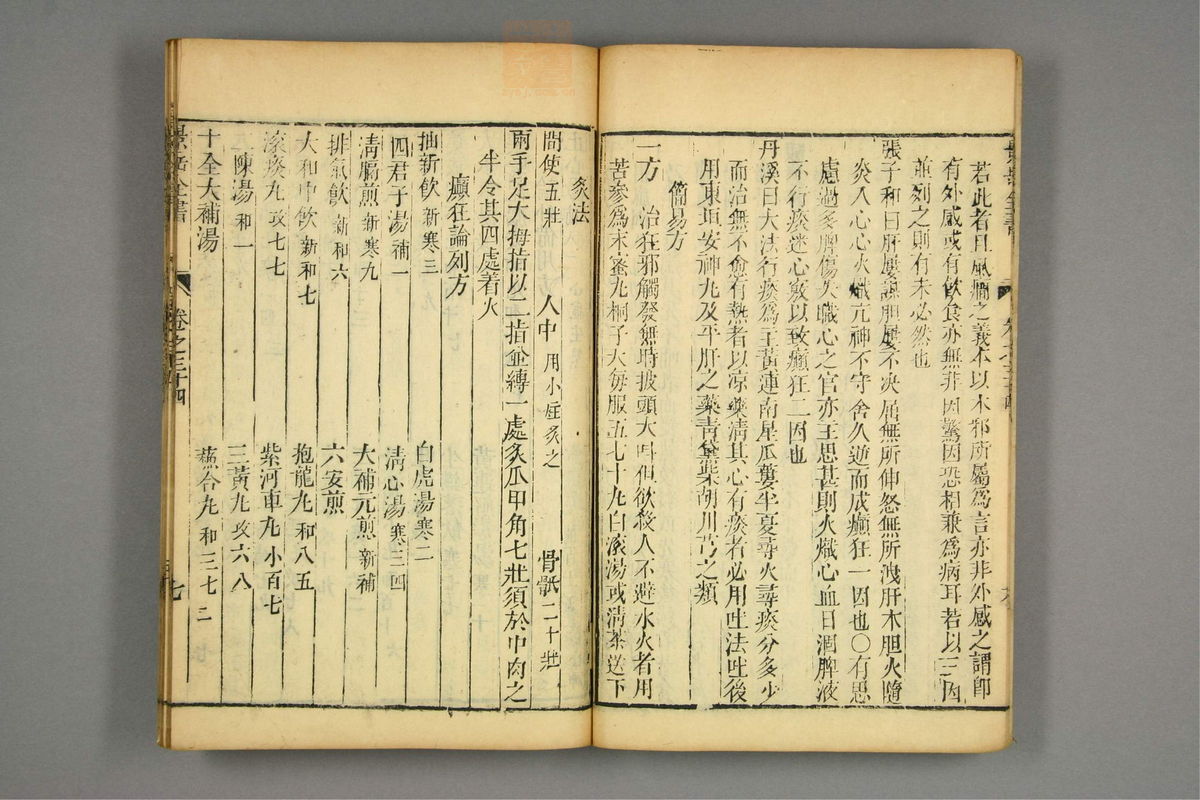 若此者曰風癇之義本以木邪所屬爲言亦非外感之謂即
有外感或有飲食亦無非因驚因恐相兼爲病耳若以三因
並列之則有未必然也
張子和曰肝屢謀胆屢不决屈無所伸怒無所洩肝木胆火隨
炎入心心火熾亢神不守舍久逆而成癲狂一因也〇有思
慮過多脾傷失職心之官亦主思甚則火熾心血日涸脾液
不行痰迷心竅以致癲狂二因也
丹溪曰大法行痰爲主黄連南星瓜蔞半夏尋火尋痰分多少
而治無不愈有熱者以凉藥清其心有痰者必用吐法吐後
用東垣安神丸及平肝之藥青黛柴胡川芎之類
簡易方
一方 治狂邪觸發無時披頭大叫但欲殺人不避水火者用
苦參爲末蜜丸桐子大每服五七十丸白滚湯或清茶送下
灸法
間使五壯 人中 用小炷灸之 骨骶二十壯
兩手足大拇指以二指並縛一處灸爪甲角七壯須於甲肉之
半令其四處着火
癲狂論列方
抽薪飲 新寒三 白虎湯 寒二
四君子湯 補一 清心湯 寒三四
清膈煎 新寒九 大補元煎 新補
排氣飲 新和六 六安煎
大和中飲 新和七 抱龍丸 和八五
滚痰丸 攻七七 紫河車丸 小百七
二陳湯 和一 三黃丸 攻六八
十全大補湯 蘇合丸 和三七二
景岳全書 卷之三十四 七